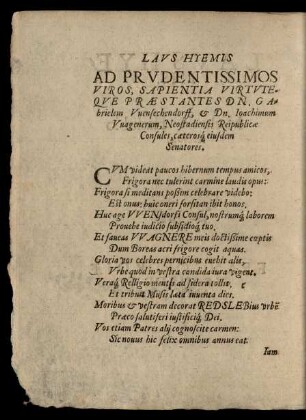 LAVS HYEMIS
AD PRVDENTISSIMOS
VIROS, SAPIENTIA VIRTVTE-
QVE PRÆSTANTES DN. GA-
brielem Vuensechendorff, & Dn. Ioachimum
Vuagenerum, Neostadiensis Reipublicæ
Consules, cæterosq́ eiusdem
Senatores.
CVM videat paucos hibernum tempus amicos,
Frigora nec tulerint carmine laudis opus:
Frigora si meditans possim celebrare videbo:
Est onus; huic oneri forsitan ibit honos.
Huc age VVENSdorfi Consul, nostrumq́ laborem
Prouehe iudicio subsidioq́ tuo,
Et faueas VVAGNERE meis doctissime cœptis
Dum Boreas acri frigore cogit aquas.
Gloria vos celebres pernicibus euehit alis,
Vrbe quòd in vestra candida iura vigent.
Veraq́ Relligio mentes ad sidera tollit,
Et tribuit Musis læta iuuenta dies.
Moribus & vestram decorat REDSLEBius vrbē
Præco salutiferi iustificiq́ Dei.
Vos etiam Patres alij cognoscite carmen:
Sic nouus hic felix omnibus annus eat.
Iam